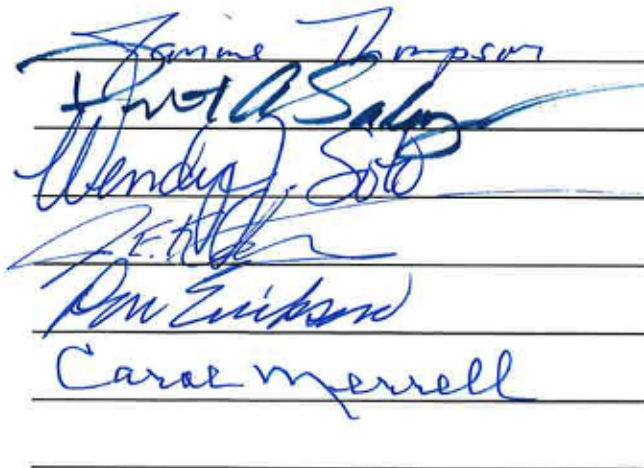 Janine Thompson
A Salaz
Wendy J. Soto
J. E.
Don Erikson
Carol Merrell